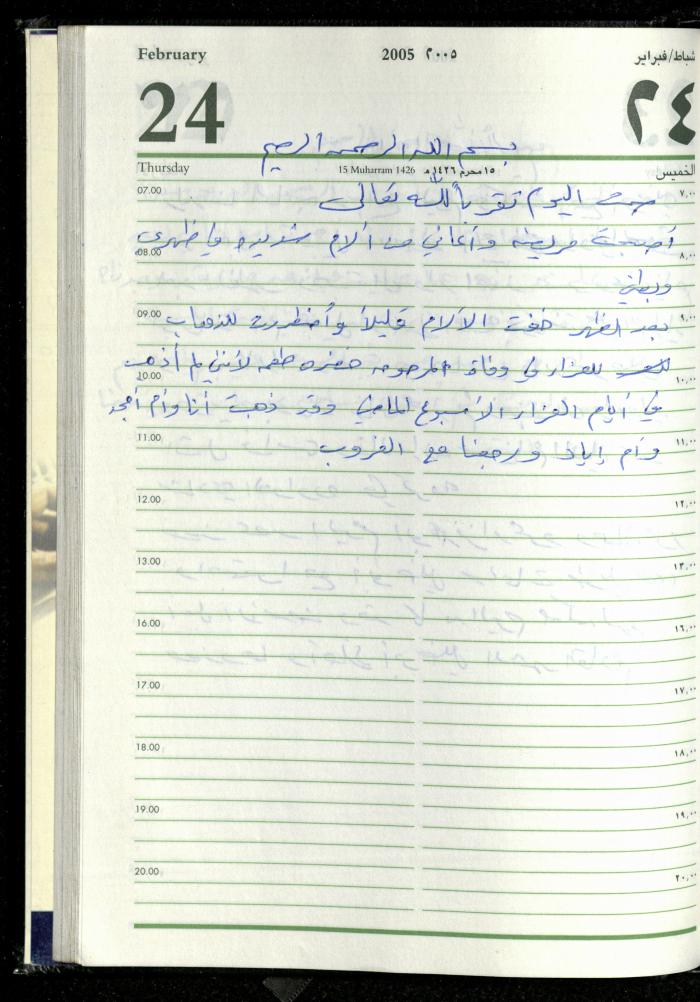 February 2005 ٢٠٠٥ شباط/فبراير
24 ٢٤
بسم الله الرحمن الرحيم
Thursday 15 Muharram 1426 ١٥ محرم ١٤٢٦ هـ الخميس
07.00 ٧,٠٠
صمت اليوم تقرباً لله تعالى
أصبحت مريضه وأعاني من آلام شديده في ظهري
08.00 ٨,٠٠
وبطني
09.00 ٩,٠٠
بعد الظهر خفت الآلام قليلاً وأضطررت للذهاب
للعزاء في وفاة المرحومه لأنني لم أذهب
10.00 ١٠,٠٠
في أيام العزاء الأسبوع الماضي وقد ذهبت أنا وأم أمجد
11.00 ١١,٠٠
وأم إياد ورجعنا مع الغروب
12.00 ١٢,٠٠
13.00 ١٣,٠٠
16.00 ١٦,٠٠
17.00 ١٧,٠٠
18.00 ١٨,٠٠
19.00 ١٩,٠٠
20.00 ٢٠,٠٠